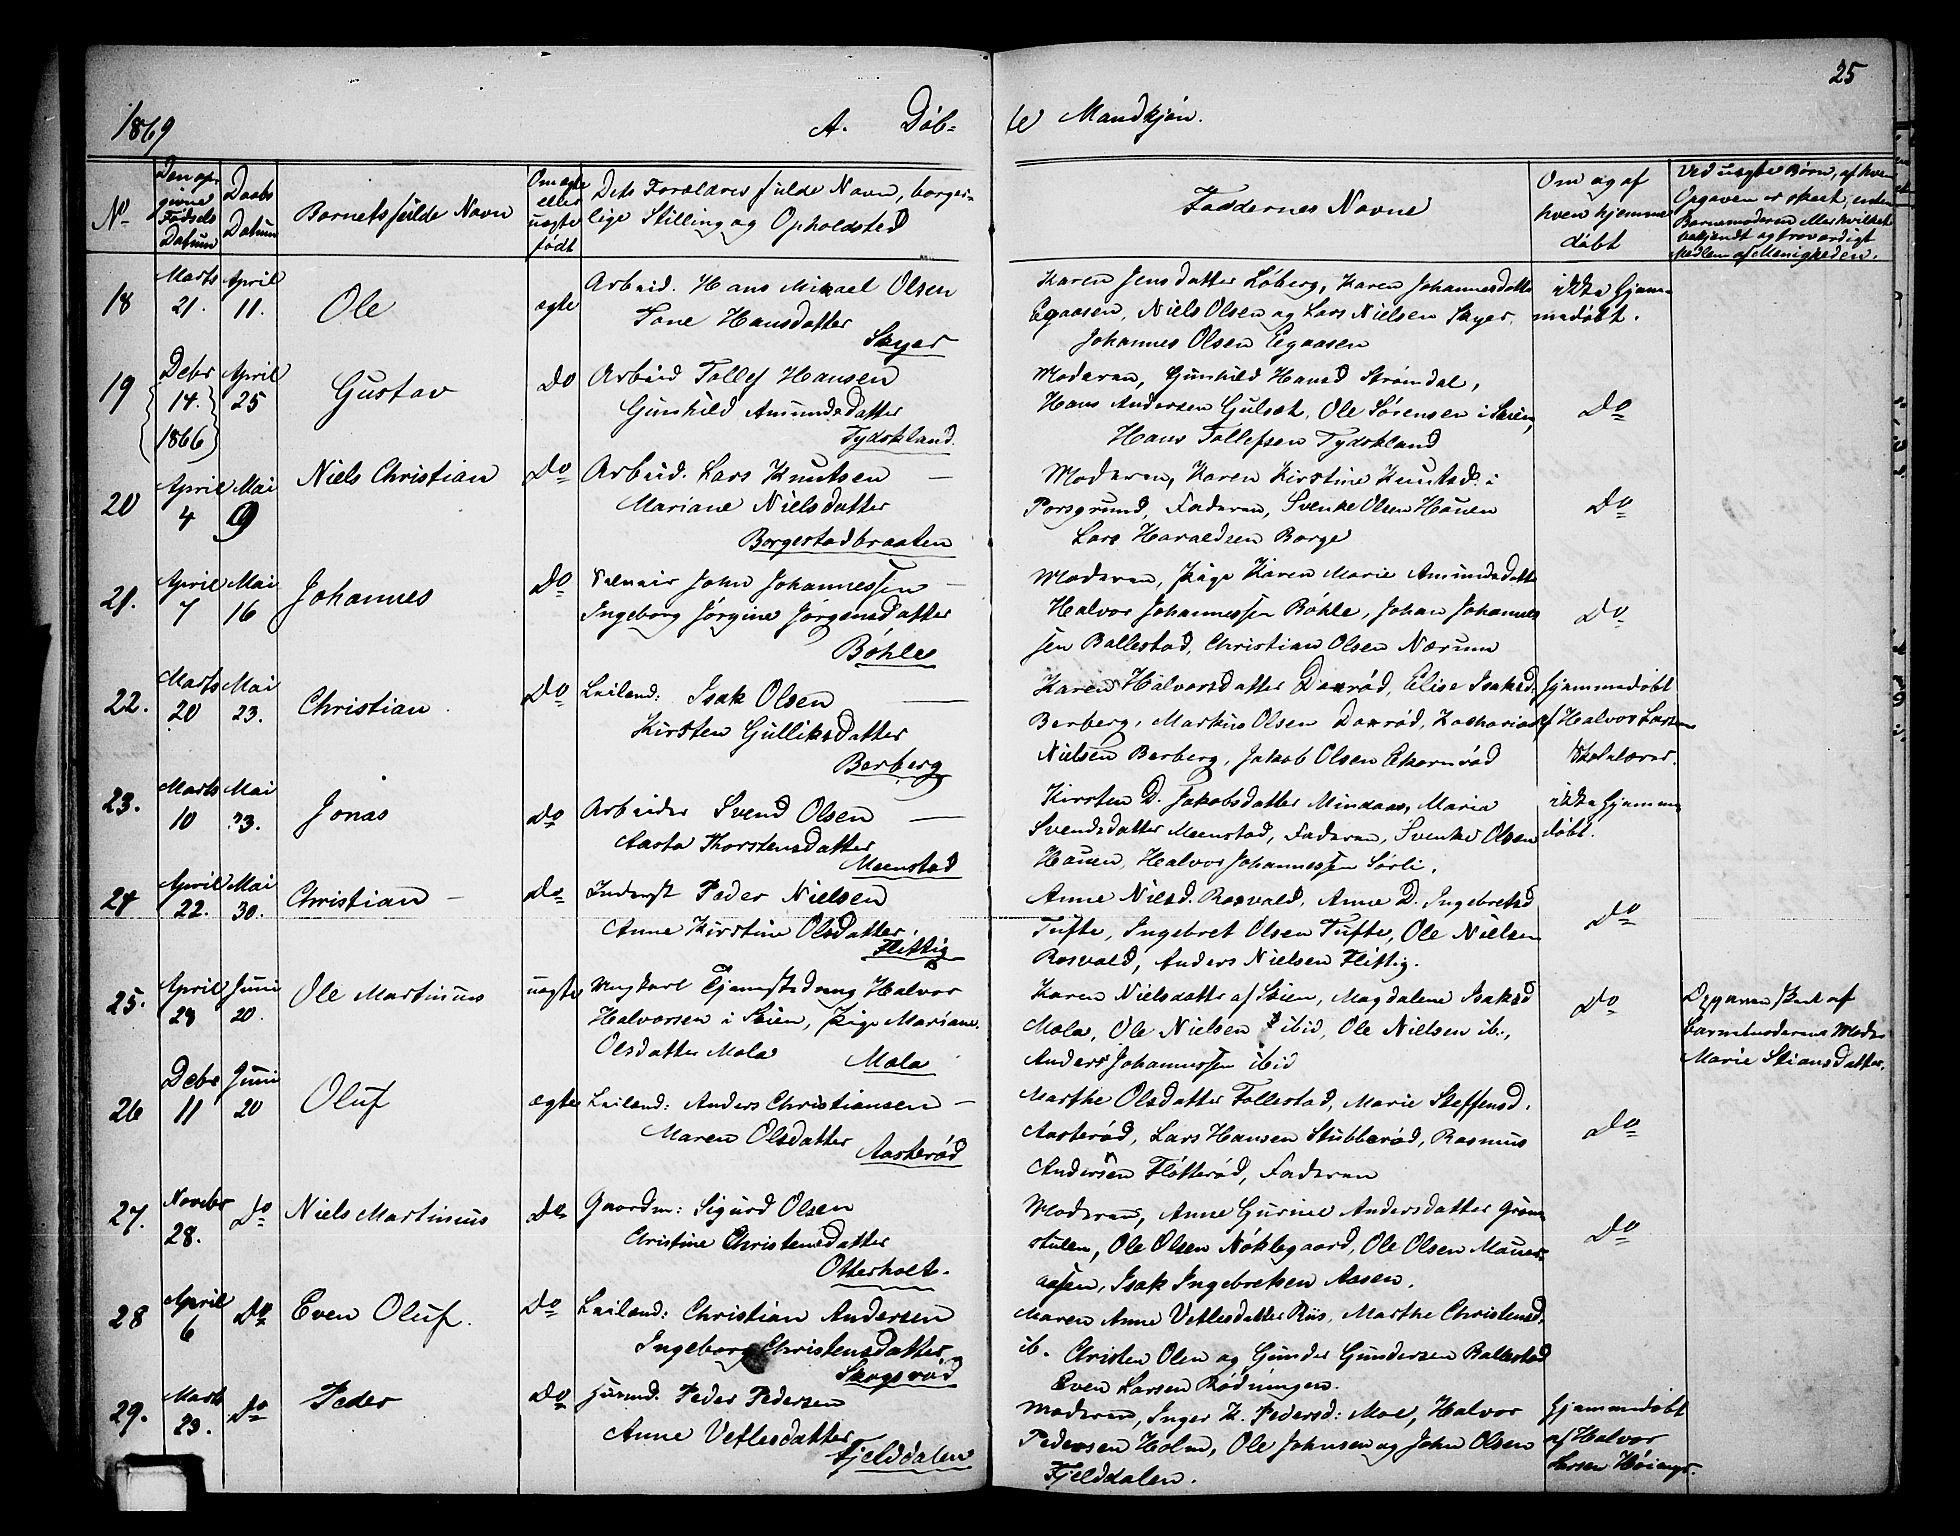 25
1869 A. Døb- te Mandkjøn.
No
Den op-
givne
Fødsels
Datum
Daabs
Datum
Barnets fulde Navn
Om ægte
eller
uægte
født
Dets Forældres fulde Navn, borger-
lige Stilling og Opholdsted
Faddernes Navne
Om og af
hvem hjemme
døbt
Ved uægte Børn, af hvem
Opgaven er skeet, uden
Barnemoderen eller hvilket
bekjendt og troværdigt
Medlem af Menigheden.
18 Marts 21. April 11. Ole ægte
Arbeid. Hans Mikael Olsen
Tone Hansdatter
Skyer
Karen Jensdatter Løberg, Karen Johannesdatte
Egaasen, Niels Olsen og Lars Nielsen Skyer,
Johannes Olsen Egaasen
ikke hjem-
medøbt.
19 Debr 14. 1866 April 25 Gustav Do
Arbeid Tollef Hansen
Gunhild Amundsdatter
Tydskland.
Moderen, Gunhild Hansd Strømdal,
Hans Andersen Gulset, Ole Sørensen i Skien,
Hans Tollefsen Tydskland
Do
20 April 4 Mai 9 Niels Christian Do
Arbeid. Lars Knutsen
Mariane Nielsdatter
Borgestadbraaten
Moderen, Karen Kirstine Knutsd. i
Porsgrund, Faderen, Svenke Olsen Hauen
Lars Haraldsen Borge
Do
21. April 7 Mai 16 Johannes Do
John Johannessen
Ingeborg Jørgine Jørgensdatter
Bøhle
Moderen, Pige Karen Marie Amundsdatte
Halvor Johannessen Bøhle, Johan Johannes
sen Ballestad, Christian Olsen Nærum
Do
22. Marts 20 Mai 23. Christian Do
Leilend: Isak Olsen
Kirsten Gulliksdatter
Berberg
Karen Halvorsdatter Dverød, Elise Isaksd.
Berberg, Markus Olsen Dverød, Zacharias
Nielsen Berberg, Jakob Olsen Ekornrød
hjemmedøbt
af Halvor Larsen
Skolelærer.
23. Marts 10 Mai 23. Jonas Do
Arbeider Svend Olsen
Aasta Thorstensdatter
Meenstad
Kirsten D. Jakobsdatter Mindaas, Maria
Svendsdatter Meenstad, Faderen, Svenke Olsen
Hauen, Halvor Johannessen Sørli.
ikke hjemme
døbt.
24 April 22. Mai 30. Christian Do
Inderst Peder Nielsen
Anne Kirstine Olsdatter
Flittig
Anne Nielsd. Rosvald, Anne D. Ingebretsd
Tufte, Ingebret Olsen Tufte, Ole Nielsen
Rosvald, Anders Nielsen Flittig.
Do
25. April 28 Juni 20. Ole Martinus uægte
Ungkarl Tjenestedreng Halvor
Halvorsen i Skien, Pige Mariane
Olsdatter Mola Mola
Karen Nielsdatter af Skien, Magdalene Isaksd
Mola, Ole Nielsen ibid, Ole Nielsen ib.,
Anders Johannessen ibid
Do
Opgaven skeet af
barnemoderens Moder
Marie Stiansdatter.
26 Debr 11 Juni 20 Oluf ægte
Leilend: Anders Christiansen
Maren Olsdatter
Aasterød
Marthe Olsdatter Follestad, Marie Steffensd.
Aasterød, Lars Hansen Stubberød, Rasmus
Andersen Fløtterød, Faderen
Do
27. Novebr 28. Do Niels Martinus Do
Gaardm: Sigurd Olsen
Christine Christensdatter
Otterholt.
Moderen, Anne Gurine Andersdatter Grøn
stulen, Ole Olsen Nøklegaard, Ole Olsen Mauer-
aasen, Isak Ingebretsen Aasen.
Do
28 April 6 Do Even Oluf. Do
Leilend: Christian Andersen
Ingeborg Christensdatter
Skogsrød
Maren Anne Vetlesdatter Riis, Marthe Christensd.
ib. Christen Olsen og Gunder Gundersen Ballestad
Even Larsen Rødningen.
29. Marts 29. Do Peder Do
Husmd. Peder Pedersen
Anne Vetlesdatter
Fjelddalen
Moderen, Inger K. Pedersd: Moe, Halvor
Pedersen Holm, Ole Johnsen og John Olsen
Fjelddalen.
Hjemmedøbt
af Halvor
Larsen